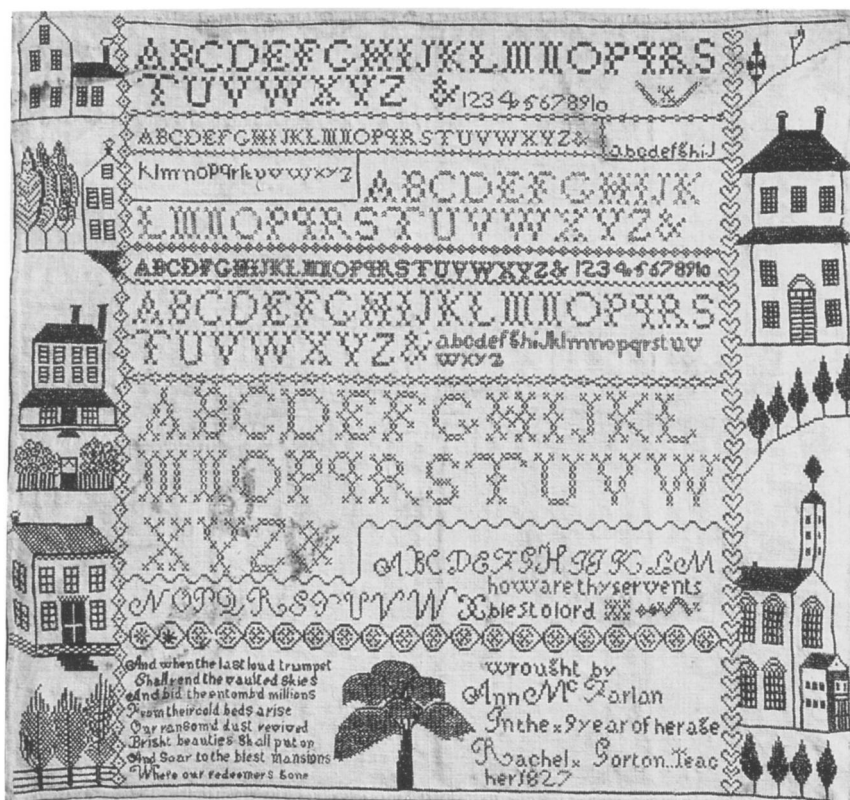 ABCDEFGHIJKLMNOPqRS
TUVWXYZ & 12345678910
ABCDEFGHIJKLMNOPqRSTUVWXYZ&
abcdefghiJ
klmnopqrstuvwxyz
ABCDEFGHIJK
LMNOPqRSTUVWXYZ&
ABCDEFGHIJKLMNOPqRSTUVWXYZ& 12345678910
ABCDEFGHIJKLMNOPqRS
TUVWXYZ& abcdefghiJklmnopqrstuv
wxyz
ABCDEFGHIJKL
MNOPqRSTUVW
XYZ&
ABCDEFGHIJKLM
NOPQRSTUVWX
how are thy servents
blest o lord
And when the last loud trumpet
Shall rend the vaulted skies
And bid the entombd millions
From their cold beds arise
Our ransomd dust revived
Bright beauties Shall put on
And Soar to the blest mansions
Where our redeemers gone
wrought by
Ann Mc Farlan
In the x 9 year of her age
Rachel x Gorton..Teac
her 1827